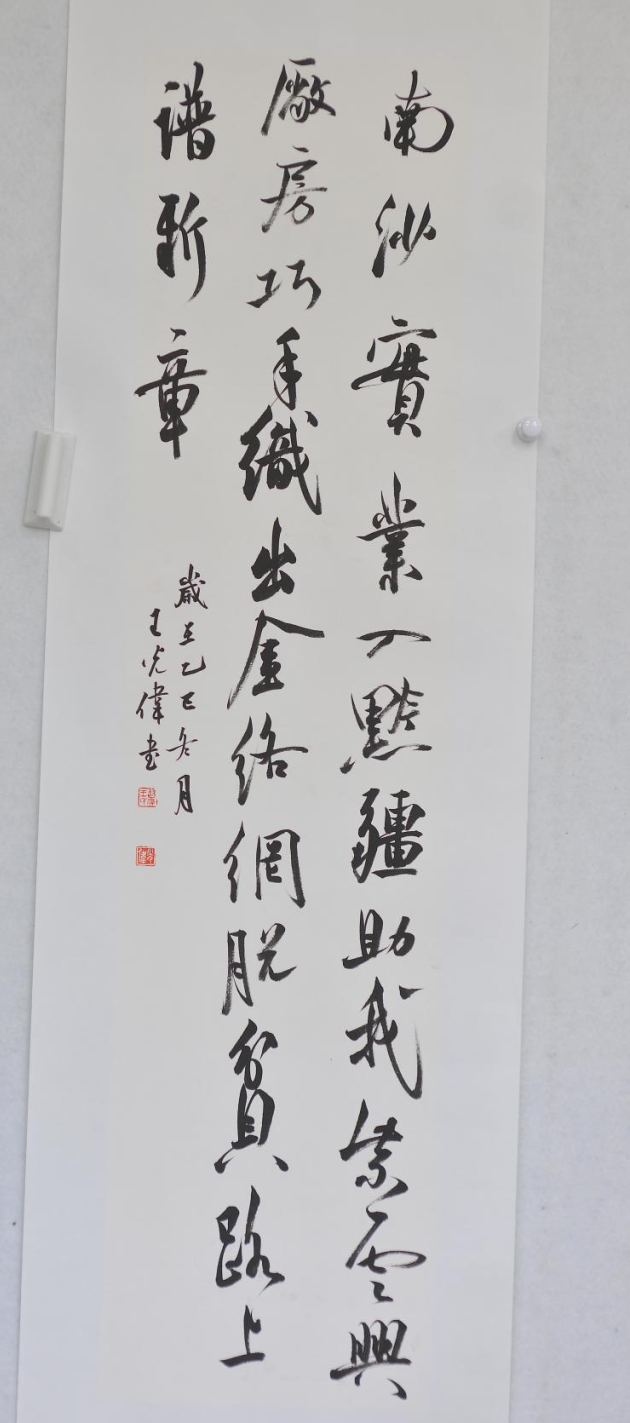 南沙實業入黔疆助我紫雲興
廠房巧手織出金絡網脱貧路上
譜新章
歲在乙巳冬月
王光偉書